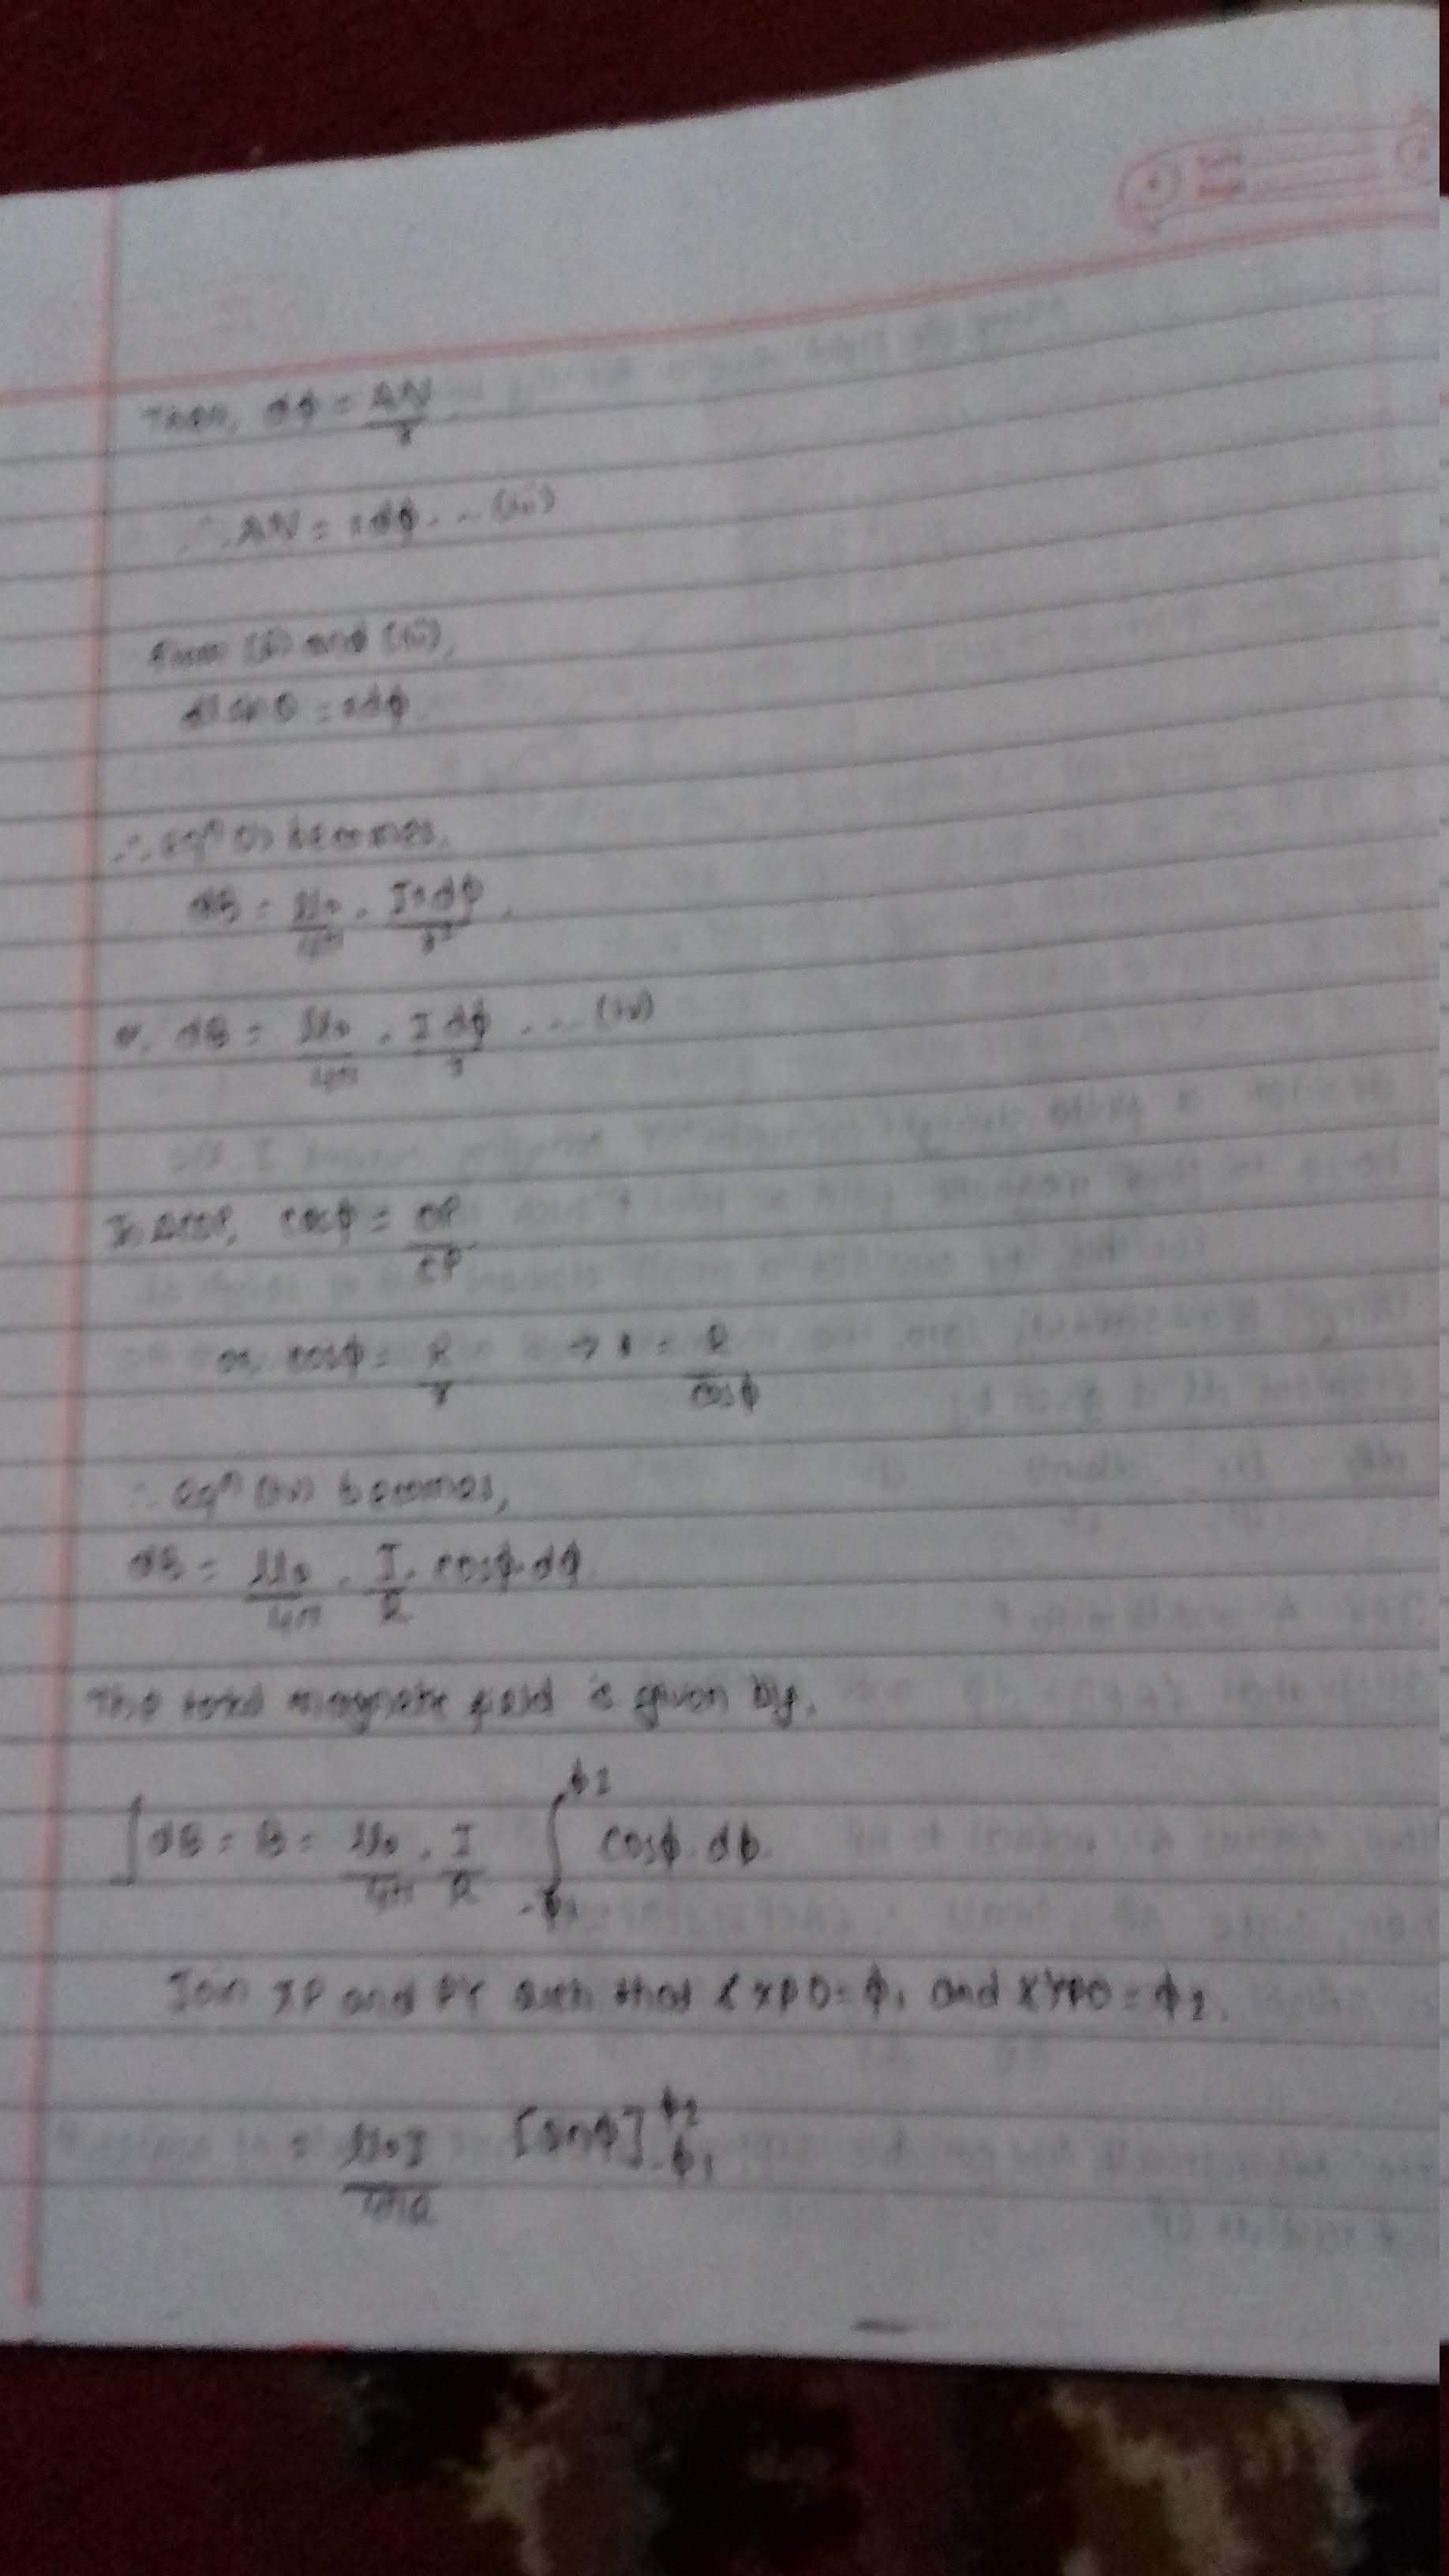 Then, dφ = AN/r
∴ AN = rdφ ... (iii)
From (ii) and (iii),
dl sin θ = rdφ
∴ eqⁿ (i) becomes,
dB = μ₀/4π . Irdφ/r²
or, dB = μ₀/4π . I dφ/r ... (iv)
In ΔCOP, cosφ = OP/CP
or, cosφ = R/r → r = R/cosφ
∴ eqⁿ (iv) becomes,
dB = μ₀/4π . I/R . cosφ.dφ
The total magnetic field is given by,
∫dB = B = μ₀/4π . I/R ∫_{-φ₁}^{φ2} cosφ. dφ.
Join XP and PY such that ∠XPO = φ₁ and ∠YPO = φ2.
= μ₀I/4πR [sinφ]_{-φ₁}^{φ2}